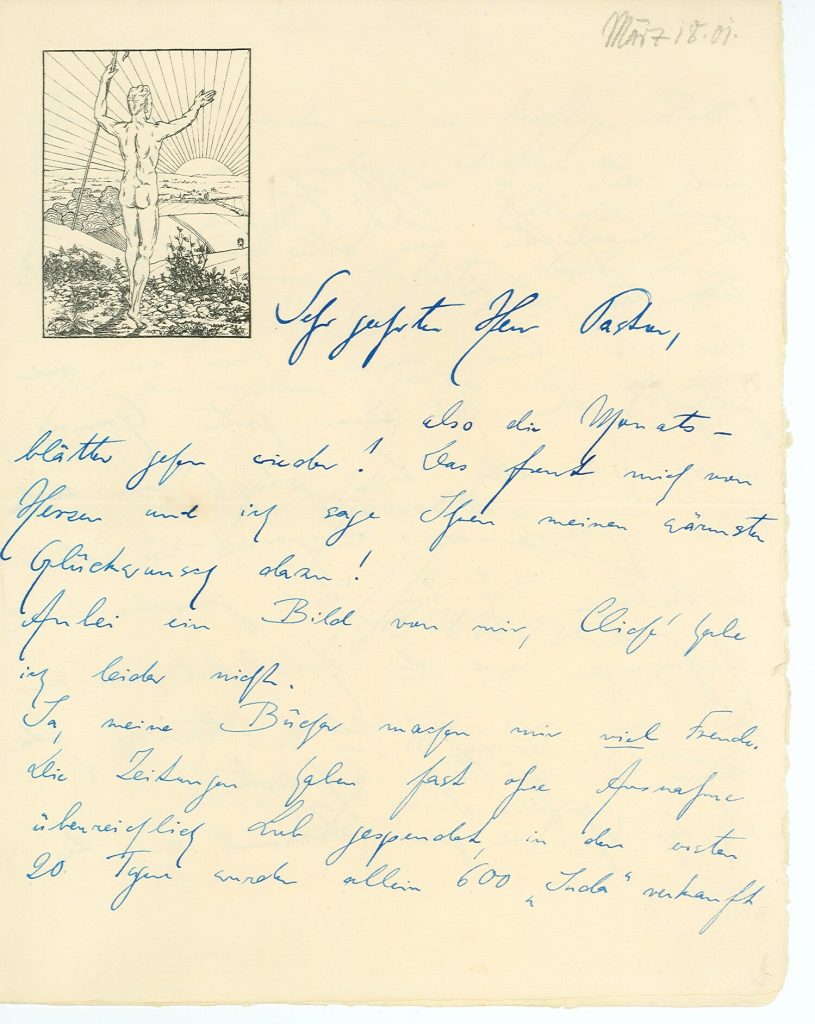 März 18. 01.
Sehr geehrter Herr Pastor,
also die Monats-
blätter gehen wieder! Das freut mich von
Herzen und ich sage Ihnen meinen wärmsten
Glückwunsch dazu!
Anbei ein Bild von mir, Cliché habe
ich leider nicht.
Ja, meine Bücher machen mir viel Freude.
Die Zeitungen haben fast ohne Ausnahme
überreichlich Lob gespendet, in den ersten
20 Tagen wurden allein 600 „Juda“ verkauft